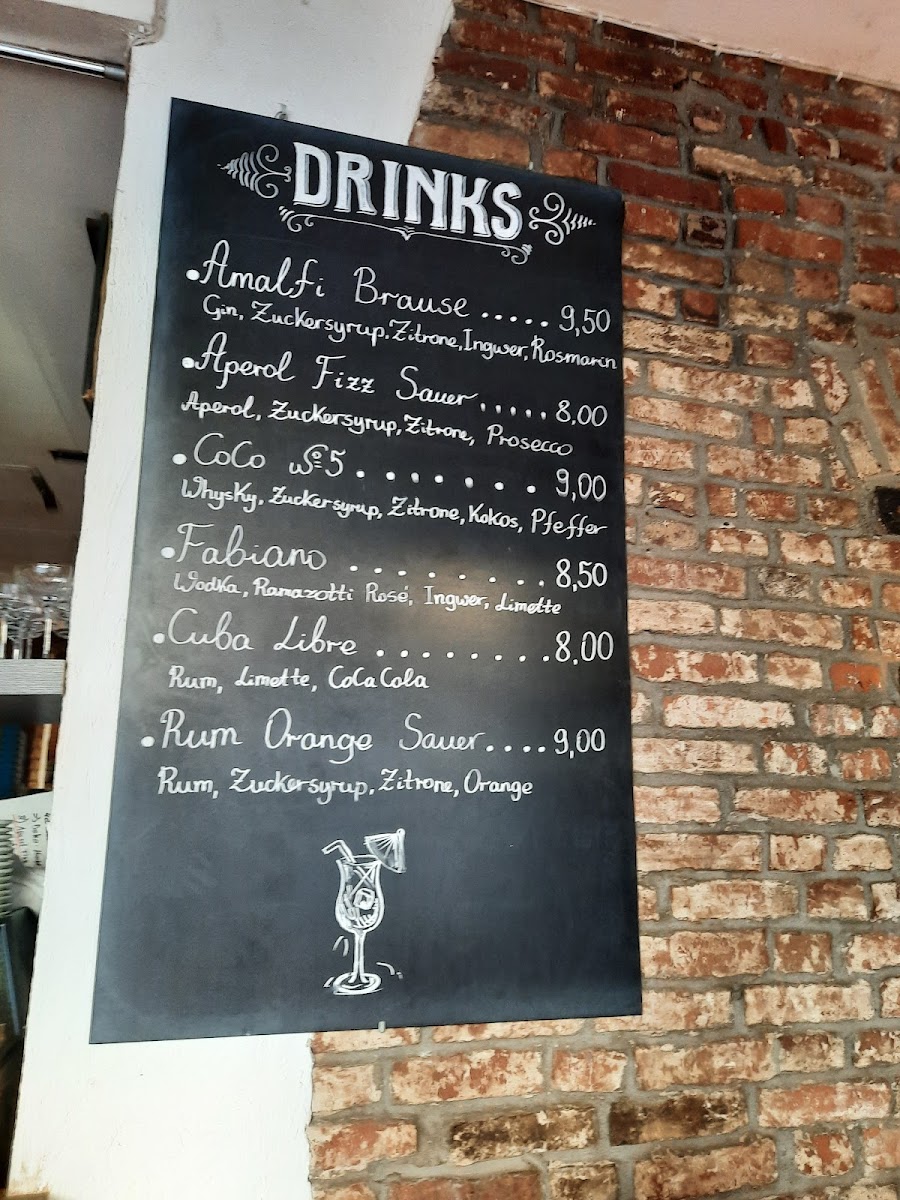 DRINKS
• Amalfi Brause ..... 9,50
Gin, Zuckersyrup, Zitrone, Ingwer, Rosmarin
• Aperol Fizz Sauer ..... 8,00
Aperol, Zuckersyrup, Zitrone, Prosecco
• CoCo № 5 . . . . . . . 9,00
Whysky, Zuckersyrup, Zitrone, Kokos, Pfeffer
• Fabiano . . . . . . . . 8,50
Wodka, Ramazotti Rosé, Ingwer, Limette
• Cuba Libre . . . . . . . . . 8,00
Rum, Limette, CoCa Cola
• Rum Orange Sauer .... 9,00
Rum, Zuckersyrup, Zitrone, Orange